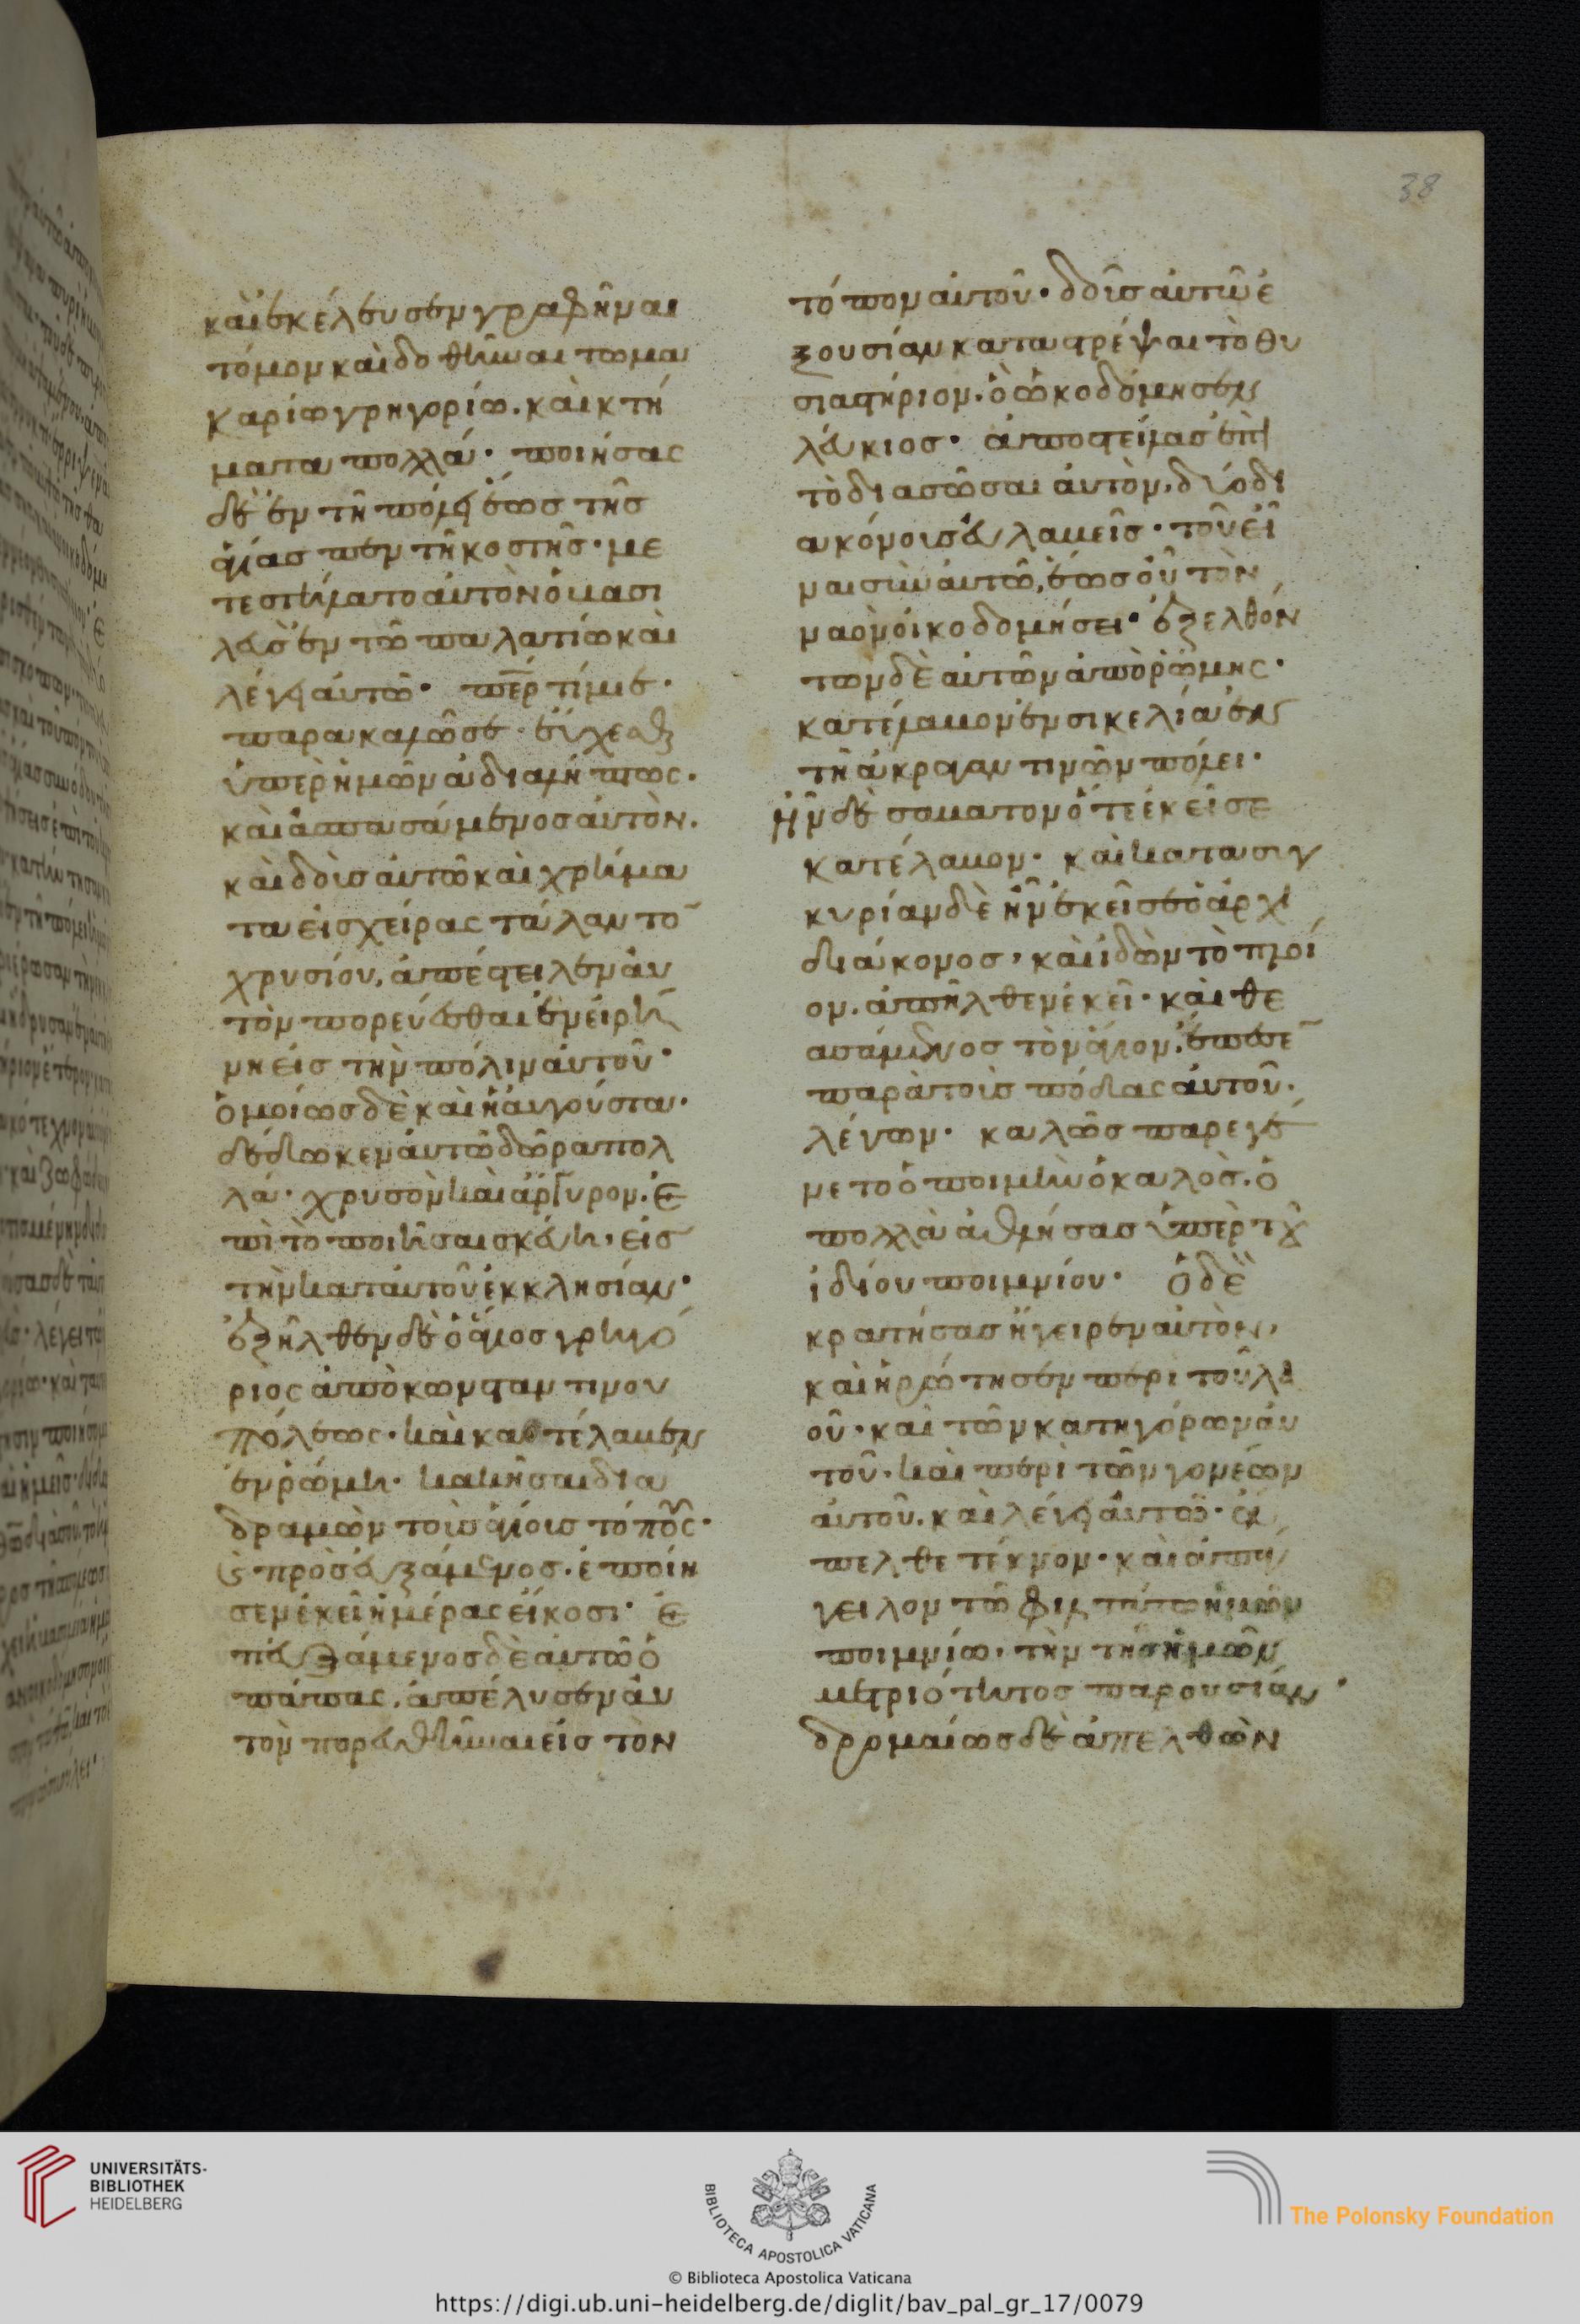 38
καὶ ἐκέλευσεν γραφῆναι
τόμον καὶ δοθῆναι τω μα
καρίω γρηγορίω. καὶ κτή
ματα πολλά· ποιήσας
δὲ ἐν τῆ πόλει ἕως τῆς
ἁγίας πεντηκοστῆς· με
τεστήλατο αὐτὸν ὁ βασι
λεὺς ἐν τῶ παλατίω καὶ
λέγει αὐτῶ· περ τίμιε·
παρακαλῶ σε· εὔχεσθαι
ὑπὲρ ἡμῶν ἀδιαλήπτως·
καὶ ἀσπασάμενος αὐτὸν.
καὶ δοὺς αὐτῶ καὶ χρήμα
τα εἰς χεῖρας τάλαντο̅
χρυσίου, ἀπέστειλεν αὐ
τὸν πορεύεσθαι ἐν εἰρή
νη εἰς τὴν πόλιν αὐτοῦ·
ὁμοίως δὲ καὶ ἡ αὐγούστα·
δέδωκεν αὐτῶ δῶρα πολ
λὰ· χρυσὸν καὶ ἄργυρον. ἐ
πὶ τὸ ποιῆσαι σκεύη· εἰς
τὴν κατ αὐτοῦ ἐκκλησίαν·
ἐξῆλθεν δὲ ὁ ἅγιος γρηγό
ριος ἀπὸ κωνσταντινου
πόλεως· καὶ κατέλαβεν
ἐν ρώμη· κακεῖσαι δια
δραμὼν τοὺς ἁγίοις τόπους·
ϛ προσευξάμενος. ἐποίη
σεν ἐκεῖ ἡμέρας εἴκοσι· ἐ
πευξάμενος δὲ αὐτῶ ὁ
πάπας, ἀπέλυσεν αὐ
τὸν πορευθῆναι εἰς τὸν
τόπον αὐτοῦ· δοὺς αὐτῶ ἐ
ξουσίαν καταστρέψαι τὸ θυ
σιαστήριον. ὃ ὠκοδόμησεν
λεύκιος· ἀποστείλας ἐπὶ
τὸ διασῶσαι αὐτὸν, δύο δι
ακόνους τοῦ εἶ
ναι σὺν αὐτῶ, ἕως οὗ τὸν
ναὸν οἰκοδομήσει· ἐξελθόν
των δὲ αὐτῶν ἀπὸ ῥώμης·
κατέλαβον ἐν σικελία ἐν
τῆ ἀκραγαντινῶν πόλει·
ἦν δὲ σαββατον ὅτε ἐκεῖσε
κατέλαβον· καὶ κατα συγ
κυρίαν δὲ ἦν ἐκεῖσε ὁ ἀρχι
διάκονος, καὶ ἰδὼν τὸ πλοί
ον. ἀπῆλθεν ἐκεῖ· καὶ θε
ασάμενος τὸν ἅγιον. ἔπεσε̅
παρὰ τοὺς πόδας αὐτοῦ.
λέγων· καλῶς παρεγέ
νετο ὁ ποιμὴν ὁ καλὸς. ὁ
πολλὰ ἀθλήσας ὑπὲρ τοῦ
ἰδίου ποιμνίου· ὁ δὲ
κρατήσας ἤγειρεν αὐτὸν,
καὶ ἠρώτησεν περὶ τοῦ λα
οῦ· καὶ τῶν κατηγόρων αὐ
τοῦ· καὶ περὶ τῶν γονέων
αὐτοῦ. καὶ λέγει αὐτῶ· ἄ
πελθε τέκνον· καὶ ἀπάγ
γειλον τῶ φιλτάτω ἡμῶν
ποιμνίω, τὴν τῆς ἡμῶν
μετριότητος παρουσίαν·
δρομαίως δὲ ἀπελθὼν
UNIVERSITÄTS-
BIBLIOTHEK
HEIDELBERG
BIBLIOTECA APOSTOLICA VATICANA
The Polonsky Foundation
© Biblioteca Apostolica Vaticana
https://digi.ub.uni-heidelberg.de/diglit/bav_pal_gr_17/0079